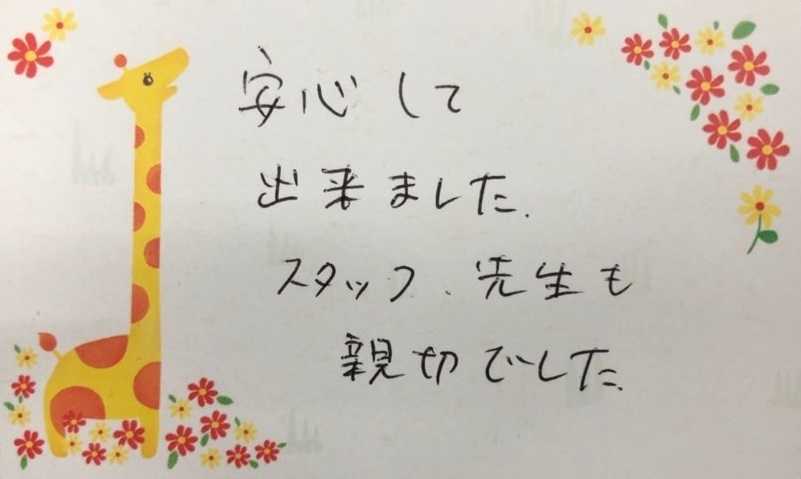 安心して
出来ました.
スタッフ、先生も
親切でした.